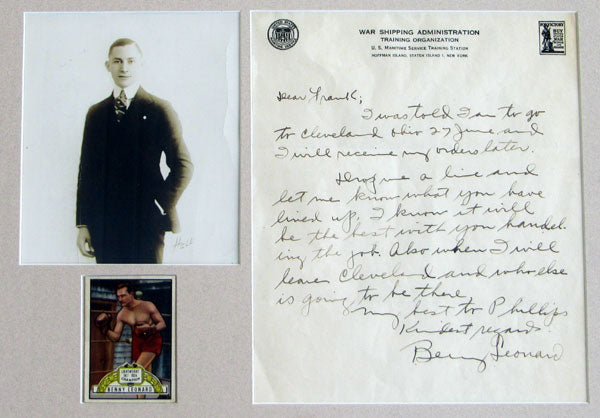 WAR SHIPPING ADMINISTRATION
TRAINING ORGANIZATION
U. S. MARITIME SERVICE TRAINING STATION
HOFFMAN ISLAND, STATEN ISLAND 1, NEW YORK
FOR VICTORY
BUY
Dear Frank;
I was told I am to go
to Cleveland Ohio 27 June and
I will receive my orders later.
Drop me a line and
let me know what you have
lined up. I know it will
be the best with you handel-
ing the job. Also when I will
leave Cleveland and who else
is going to be there
My best to Phillips
Kindest regards.
Benny Leonard
LIGHTWEIGHT
CHAMPION
BENNY LEONARD